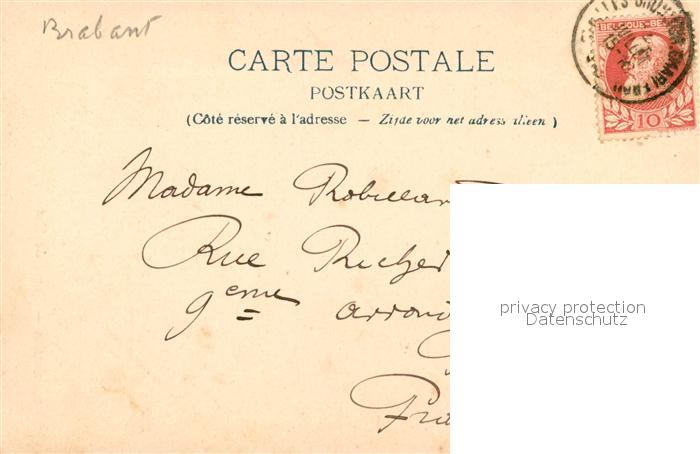 Brabant
CARTE POSTALE
POSTKAART
(Côté réservé à l'adresse — Zijde voor het adress alleen)
BELGIQUE-BE
10
Madame Robillar
Rue Richer
9eme arrond
Fra
privacy protection
Datenschutz